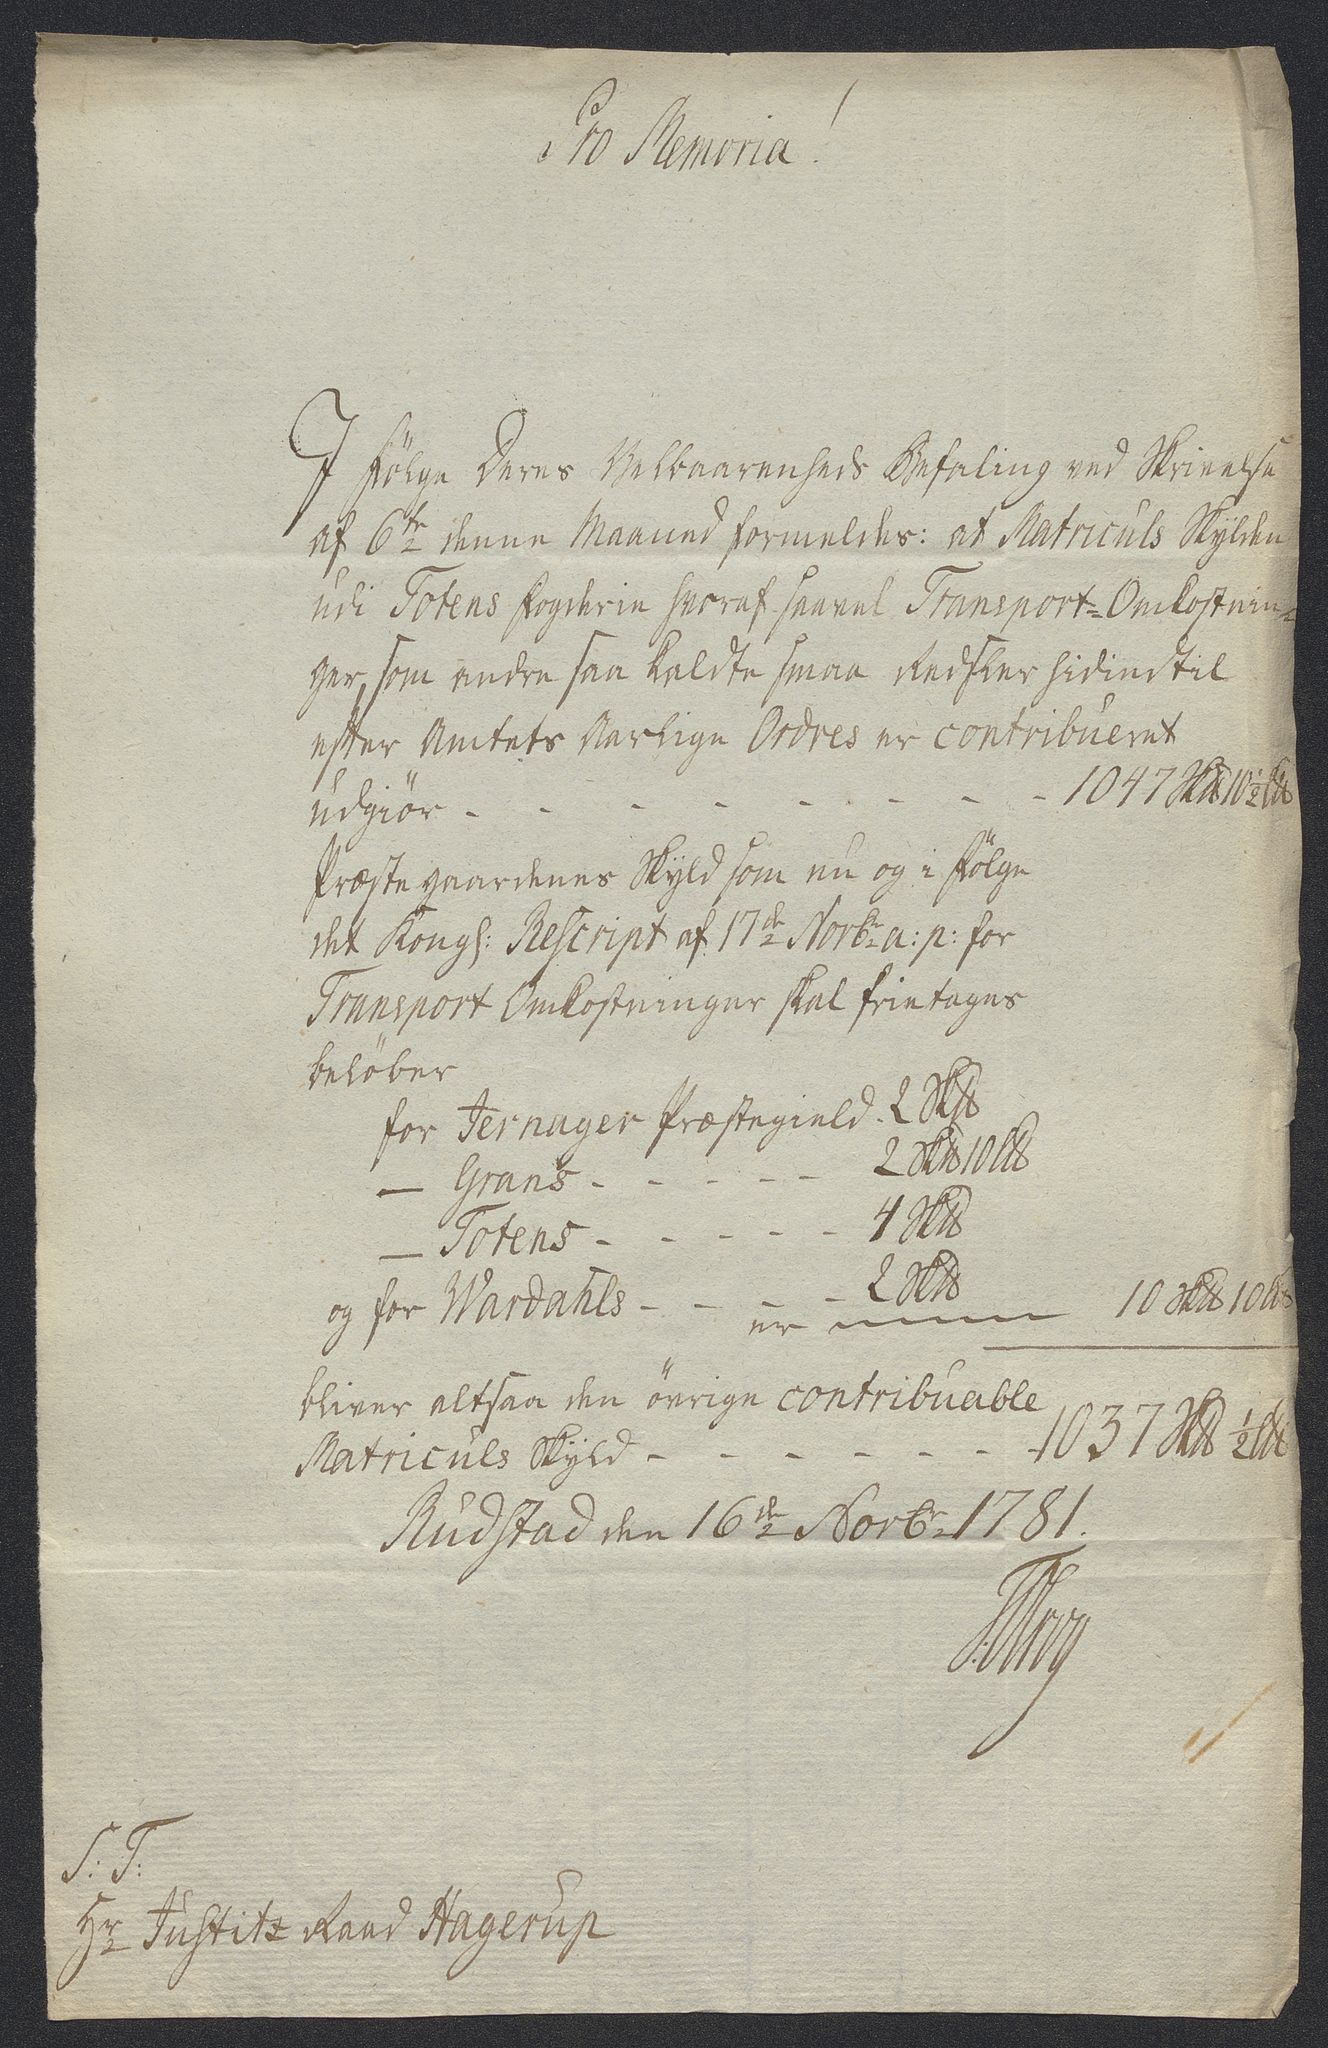 Pro Memoria!
I Følge Deres Velbaarenheds Befaling ved Skrivelse
af 6te denne Maaned formeldes: at Matriculs Skylden
udi Totens Fogderie hvoraf saavel Transport-Omkostnin-
ger, som andre saa kaldte smaa Redsler hidindtil
efter Amtets Aarlige Ordres er contribueret
udgiør - - - - - - - - 1047 Skd 10½ Ld
Præstegaardenes Skyld som nu og i Følge
det Kongl: Rescript af 17de Novbr a: p: for
Transport Omkostninger skal frietages
beløber
for Jernager Præstegield. 2 Skd
— Grans - - - - - 2 Skd 10 Ld
— Totens - - - - - 4 Skd
og for Wardahls - - - - 2 Skd
er 10 Skd 10 Ld
bliver altsaa den øvrige contribuable
Matriculs Skyld - - - - - - 1037 Skd ½ Ld
Rudstad den 16de Novbr 1781.
S: T:
Hr Justitz Raad Hagerup